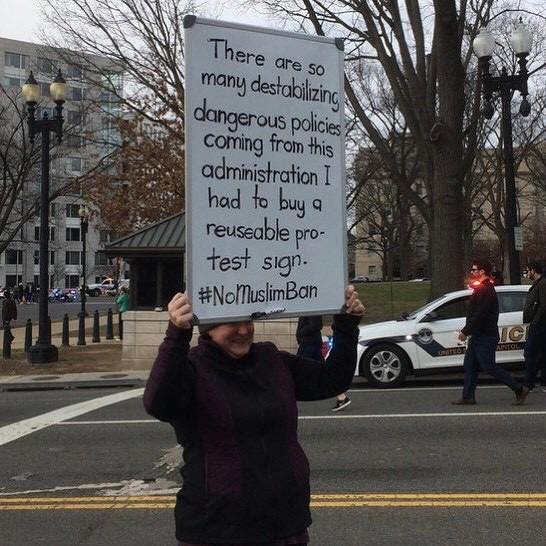 There are so
many destabilizing
dangerous policies
coming from this
administration I
had to buy a
reuseable pro-
test sign.
#NoMuslimBan
UNITED
CAPITOL